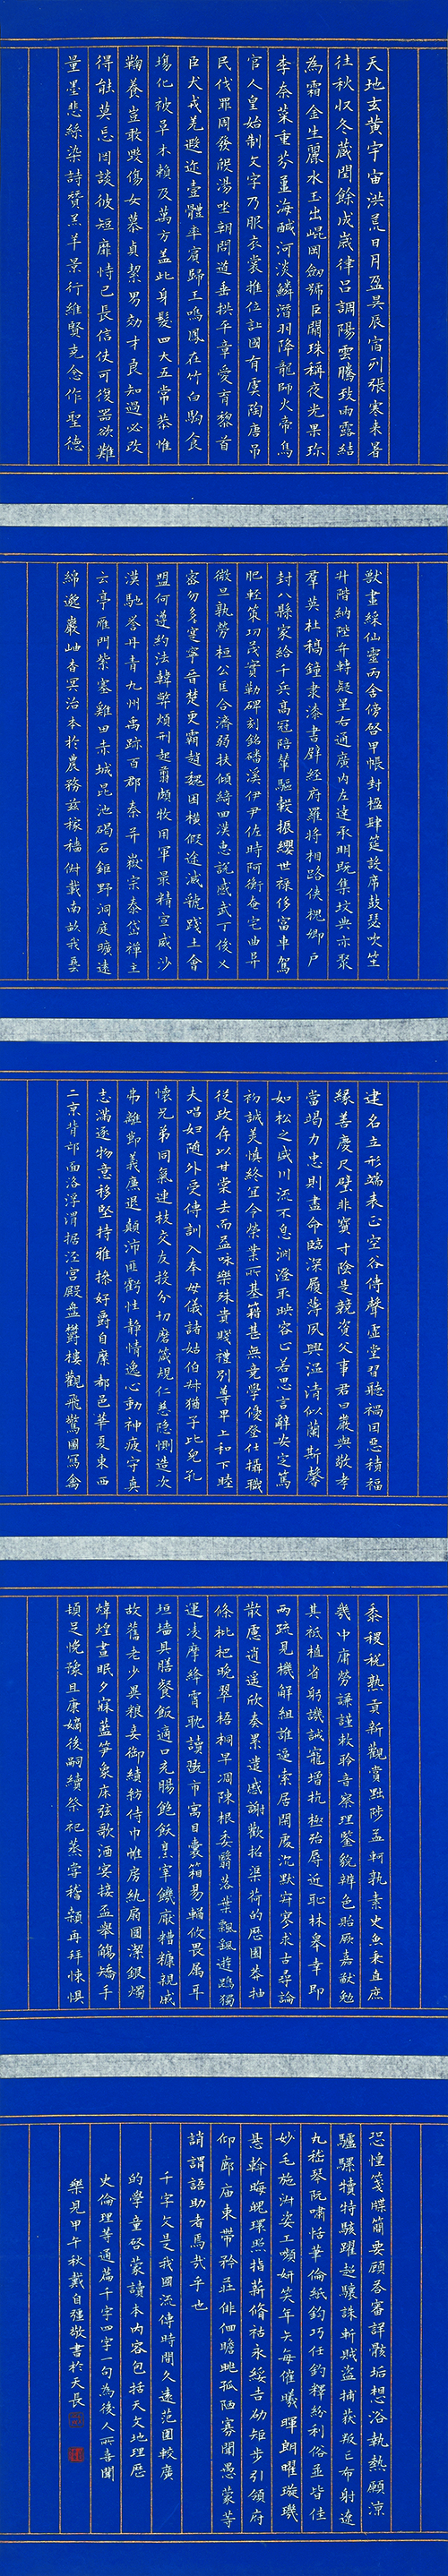 天地玄黃宇宙洪荒日月盈昃辰宿列張寒来暑
往秋収冬藏閏餘成歲律吕調陽雲騰致雨露結
為霜金生麗水玉出崐岡劍號巨闕珠稱夜光果珍
李柰菜重芥薑海鹹河淡鱗潛羽降龍師火帝鳥
官人皇始制文字乃服衣裳推位讓國有虞陶唐吊
民伐罪周發殷湯坐朝問道垂拱平章愛育黎首
臣伏戎羌遐迩壹體率賓歸王鳴鳳在竹白駒食
場化被草木賴及萬方盖此身髮四大五常恭惟
鞠養豈敢毀傷女慕貞絜男効才良知過必改
得能莫忘罔談彼短靡恃己長信使可復器欲難
量墨悲絲染詩贊羔羊景行維賢克念作聖德
獸畫綵仙靈丙舍傍啓甲帳對楹肆筵設席鼓瑟吹笙
升階納陛弁轉疑星右通廣内左達承明既集墳典亦聚
羣英杜稿鍾隸漆書壁經府羅將相路俠槐卿户
封八縣家給千兵高冠陪輦驅轂振纓世禄侈富車駕
肥輕策功茂實勒碑刻銘磻溪伊尹佐時阿衡奄宅曲阜
微旦孰營桓公匡合濟弱扶傾綺迴漢惠說感武丁俊乂
密勿多士寔寧晉楚更霸趙魏困橫假途滅虢踐土會
盟何遵約法韓弊煩刑起翦頗牧用軍最精宣威沙
漠馳譽丹青九州禹跡百郡秦并嶽宗泰岱禪主
云亭雁門紫塞雞田赤城昆池碣石鉅野洞庭曠遠
綿邈巖岫杳冥治本於農務茲稼穡俶載南畝我藝
建名立形端表正空谷傳聲虛堂習聽禍因惡積福
緣善慶尺璧非寶寸陰是競資父事君曰嚴與敬孝
當竭力忠則盡命臨深履薄夙興温凊似蘭斯馨
如松之盛川流不息淵澄取映容止若思言辭安定篤
初誠美慎終宜令榮業所基籍甚無竟學優登仕攝職
從政存以甘棠去而益咏樂殊貴賤禮别尊卑上和下睦
夫唱婦隨外受傅訓入奉母儀諸姑伯叔猶子比兒孔
懷兄弟同氣連枝交友投分切磨箴規仁慈隱惻造次
弗離節義廉退顛沛匪虧性静情逸心動神疲守真
志滿逐物意移堅持雅操好爵自縻都邑華夏東西
二京背邙面洛浮渭据涇宫殿盤欝樓觀飛驚圖寫禽
黍稷税熟貢新觀賞黜陟孟軻敦素史魚秉直庶
幾中庸勞謙謹敕聆音察理鑒貌辨色貽厥嘉猷勉
其祗植省躬譏誡寵增抗極殆辱近恥林皋幸即
兩疏見機解組誰逼索居閑處沉默寂寥求古尋論
散慮逍遥欣奏累遣慼謝歡招渠荷的歷園莽抽
條枇杷晚翠梧桐早凋陳根委翳落葉飄飖遊鵾獨
運凌摩絳霄耽讀翫市寓目囊箱易輶攸畏属耳
垣墙具膳餐飯適口充腸飽飫烹宰饑厭糟糠親戚
故舊老少異糧妾御績紡侍巾帷房紈扇圓潔銀燭
煒煌晝眠夕寐藍筍象床弦歌酒宴接盃舉觴矯手
頓足悦豫且康嫡後嗣續祭祀蒸嘗稽顙再拜悚懼
恐惶箋牒簡要顧答審詳骸垢想浴執熱願涼
驢騾犢特駭躍超驤誅斬賊盗捕獲叛亡布射遼
丸嵇琴阮嘯恬筆倫紙鈞巧任釣釋紛利俗並皆佳
妙毛施淑姿工嚬妍笑年矢每催曦暉朗曜璇璣
懸斡晦魄環照指薪脩祜永綏吉劭矩步引領府
仰廊廟束帶矜莊徘徊瞻眺孤陋寡聞愚蒙等
誚謂語助者焉哉乎也
千字文是我國流傳時間久遠范圍較廣
的學童啓蒙讀本内容包括天文地理歷
史倫理等通篇千字四字一句為後人所喜聞
樂見甲午秋戴自强敬書於天長